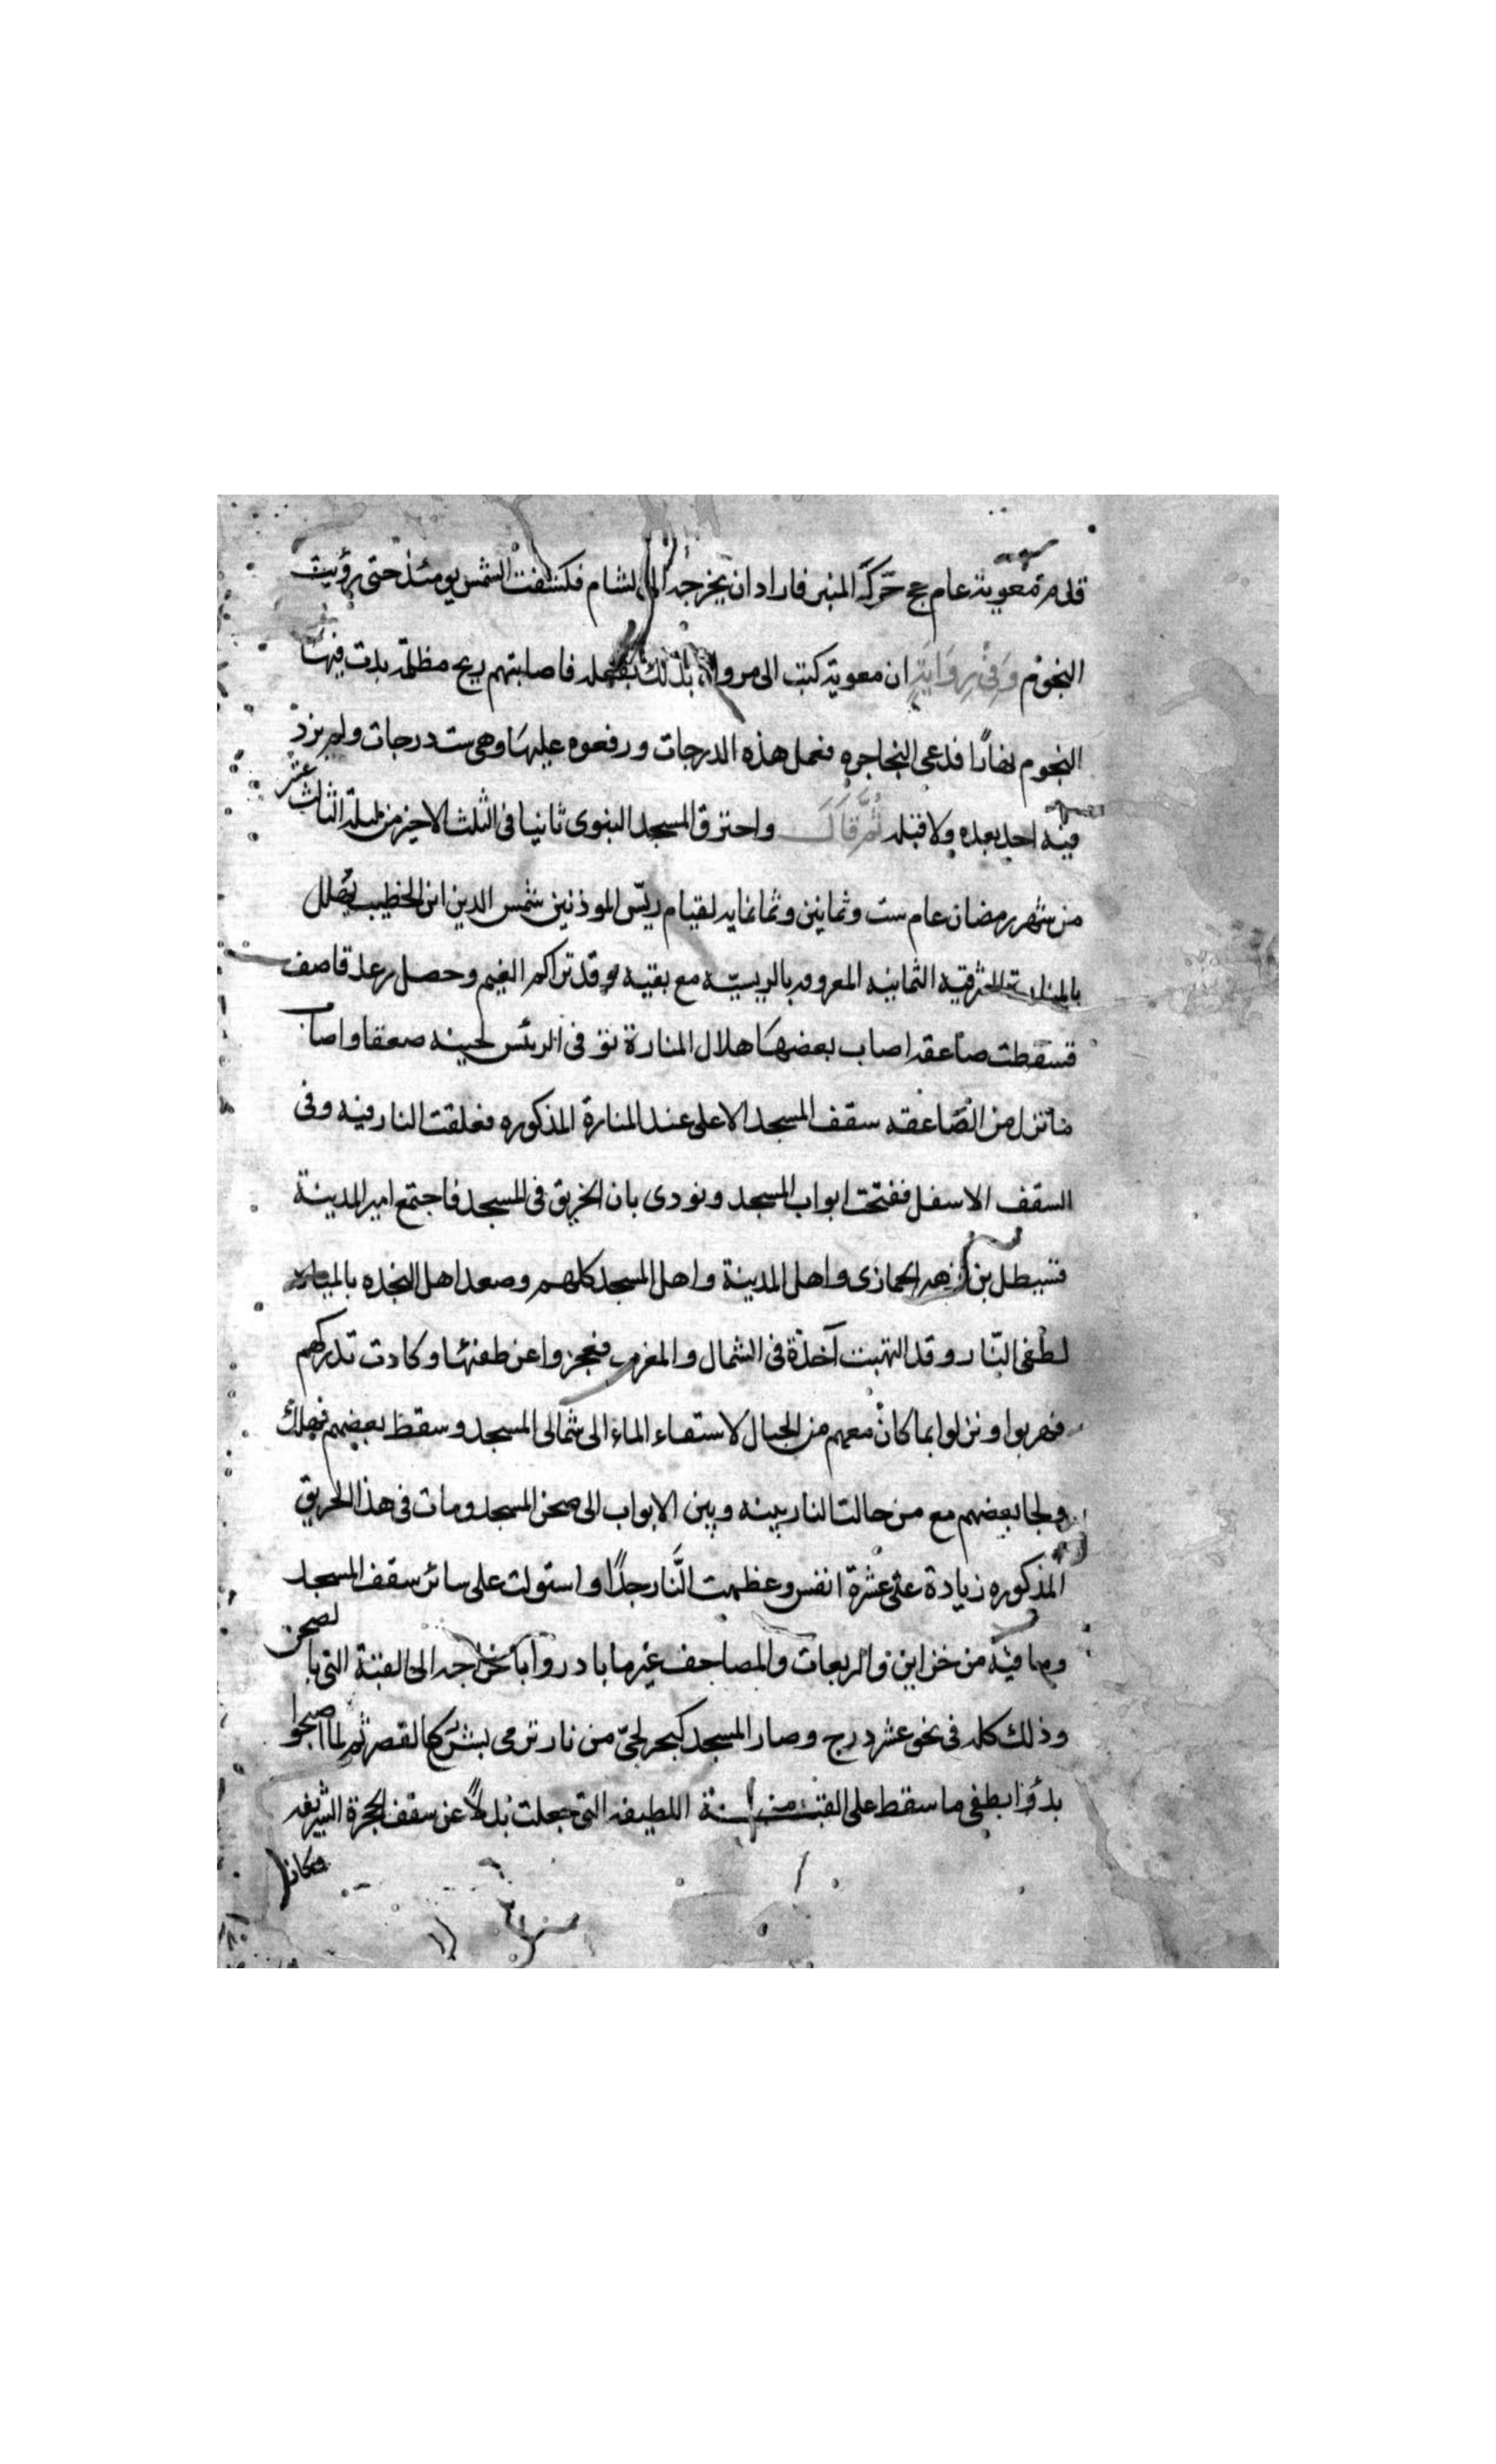 قدم معوية عام حج حرك المنبر فاراد ان يخرجه الى الشام فكشفت الشمس يومئذ حتى رؤيت
النجوم وفي رواية ان معوية كتب الى مروان بذلك بقلعه فاصابتهم ريح مظلمة بدت فيها
النجوم نهارًا فدعى النجاجره فعمل هذه الدرجات ورفعوه عليها وهي ست درجات ولم يزد
فيه احد بعده ولا قبله ثم قال واحترق المسجد النبوى ثانيا فى الثلث الاخير من ليلة الثالث عشر
من شهر رمضان عام ست وثمانين وثمانمايه لقيام ريّس الموذنين شمس الدين ابن الخطيب يهلل
بالمنارة الشرقيه الثمانيه المعروفه بالريسيّه مع بقيه وقد تراكم الغيم وحصل رعد قاصف
فسقطت صاعقه اصاب بعضها هلال المنارة توفى الرئس لحينه صعقا واصاب
ماتنزل من الصّاعقه سقف المسجد الاعلى عند المنارة المذكوره فعلقت النار فيه وفى
السقف الاسفل ففتحت ابواب المسجد ونودى بان الحريق فى المسجد فاجتمع امير المدينة
قسيطل بن زهير الجمازى واهل المدينة واهل المسجد كلهم وصعد اهل النجده بالمياه
لطفى النّار وقد التهبت آخذة فى الشمال والمغرب فعجزوا عن طفئها وكادت تدركهم
فهربوا ونزلوا بما كان معهم من الحبال لاستقاء الماء الى شمالى المسجد وسقط بعضهم فهلك
ولجا بعضهم مع من حالت النار بينه وبين الابواب الى صحن المسجد ومات فى هذا الحريق
المذكوره زيادة على عشرة انفس وعظمت النَّار جدًا واستولت على سائر سقف المسجد
وما فيه من خزاين والربعات والمصاحف غير ما بادروا باخراجه الى القبة التى بالصحن
وذلك كله فى نحو عشر درج وصار المسجد كبحر لجىّ من نار ترمى بشرر كالقصر ثم لما اصبحوا
بدؤا بطفى ما سقط على القبة اللطيفه التى جعلت بدلاً عن سقف الحجرة الشريفه
وكان